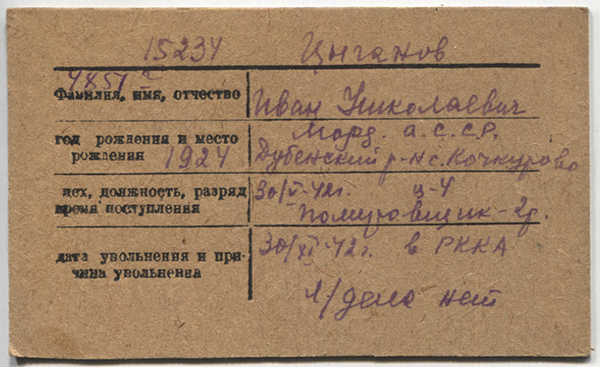 15234 Цыганов
4851
Фамилия, имя, отчество Иван Николаевич
год рождения и место Морд. А.С.С.Р.
рождения 1924 Дубенский р-н с. Кочкурово
цех, должность, разряд 30/V-42г. ц-4
время поступления 2р.
дата увольнения и при- 30/XI-42г. в РККА
чина увольнения
л/дела нет